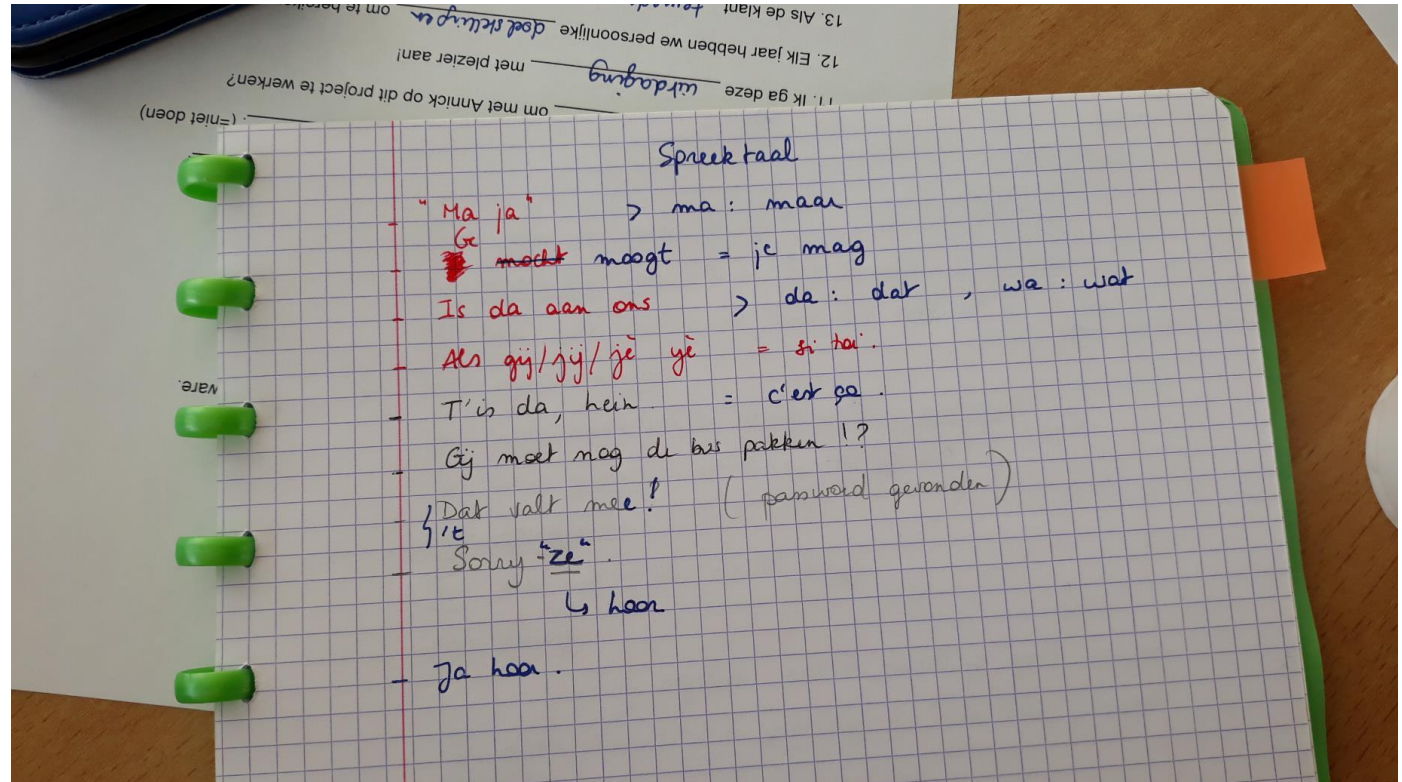 13. Als de klant
12. Elk jaar hebben we persoonlijke doelstellingen om te bereiken
11. Ik ga deze uitdaging met plezier aan!
om met Annick op dit project te werken?
. (=niet doen)
ware.
Spreektaal
- "Ma ja" > ma : maar
Ge
- mocht moogt = je mag
- Is da aan ons > da : dat , wa : wat
- Als gij/jij/jè yè = si toi.
- T'is da, hein = c'est ça.
- Gij moet nog de bus pakken !?
- Dat valt mee! (password gevonden)
't
- Sorry "ze".
↳ hoor
- Ja hoor.